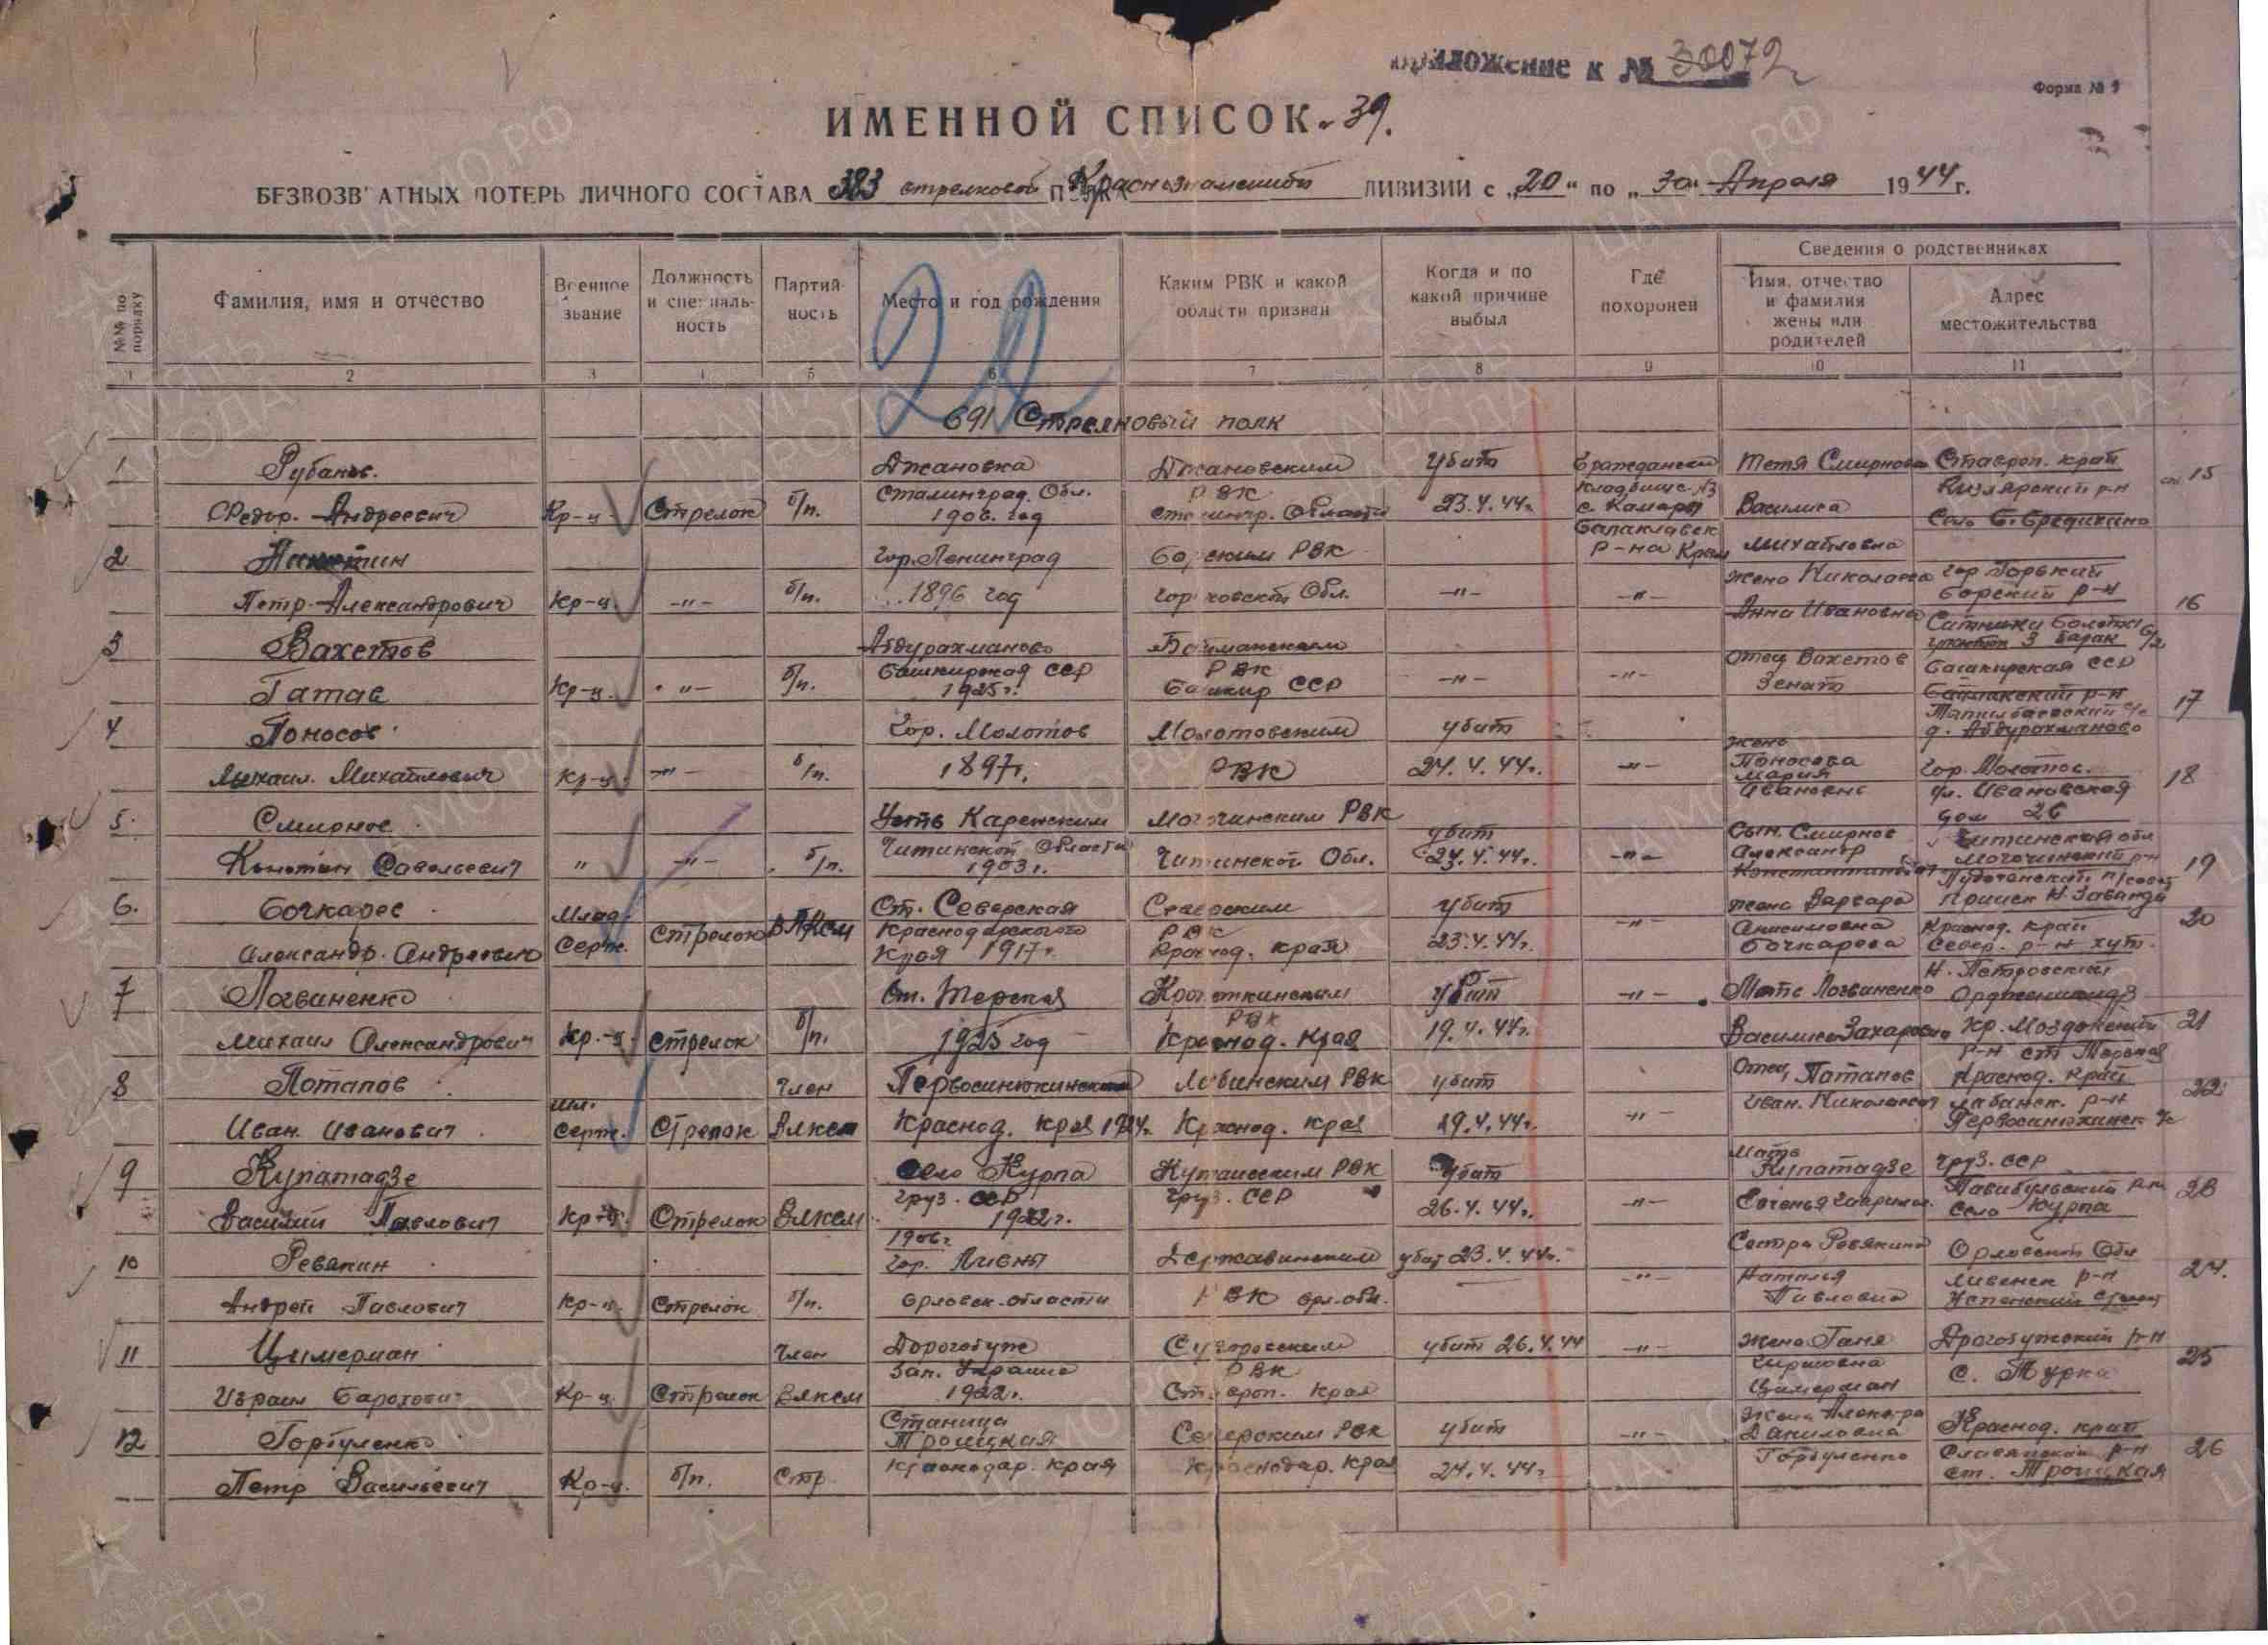 Приложение к № 30072
Форма № 9
ИМЕННОЙ СПИСОК 39.
БЕЗВОЗВ АТНЫХ ПОТЕРЬ ЛИЧНОГО СОСТАВА 383 стрелковой Краснознаменной ДИВИЗИИ с „20“ по „30“ Апреля 1944 г.
№№ по порядку
Фамилия, имя и отчество
Военное звание
Должность и специальность
Партийность
Место и год рождения
Каким РВК и какой области призван
Когда и по какой причине выбыл
Где похоронен
Сведения о родственниках
Имя, отчество и фамилия жены или родителей
Адрес местожительства
1 2 3 4 5 6 7 8 9 10 11
22
691 Стрелковый полк
1 Рубанов Джановка Джановским убит Гражданский тетя Смирнова Ставроп. край 15
Федор Андреевич Кр-ц Стрелок б/п. Сталинград. Обл. 1906 год РВК области 23.4.44г. кладбище с. Камары Балаклавск р-на Крым Василиса Михайловна Кизлярский р-н
2 гор. Ленинград Борским РВК жена Николаева гор Горький
Петр Александрович Кр-ц. -"- б/п. 1896 год Обл. -"- -"- Анна Ивановна Борский р-н 16
участок 3 барак
3 Вахетов Абдурахманово РВК отец Вахетов Башкирская ССР
Гатав Кр-ц. -"- б/п. Башкирская ССР 1925г. Башкир ССР -"- -"- Зенат р-н 17
д. Абдурахманово
4 Поносов Гор. Молотов Молотовским убит жена
Михаил Михайлович Кр-ц. -"- б/п. 1897г. РВК 24.4.44г. -"- Поносова Мария Ивановна гор. Молотов. ул. Ивановская дом 26 18
5. Смирнов Усть Могочинским РВК убит сын. Смирнов Читинская обл
Савельевич " -"- б/п. Читинской области 1903г. Читинской Обл. 24.4.44г. -"- Александр Константинович Могочинский р-н 19
6. Бочкарев Млад. Ст. Северская Северским убит жена Варвара
Александр Андреевич Серж. Стрелок ВЛКСМ Краснодарского Края 1917г. РВК Краснод. край 23.4.44г. -"- Анисимовна Бочкарева Краснод. край Север. р-н хут. Н. Петровский 20
7 Логвиненко Ст. Терская Кропоткинским убит -"- Мать Логвиненко Орджоникидз
Михаил Александрович Кр.-ц. стрелок б/п. 1925 год РВК Краснод. Края 19.4.44г. Василиса Захаровна Кр. Моздокский р-н ст Терская 21
8 Потапов член Любинским РВК убит отец Потапов Краснод. край 22
Иван Иванович мл. Серж. Стрелок ВЛКСМ Краснод. края 1924г. Краснод. Края 29.4.44г. -"- Иван. Николаевич р-н
9 Купатадзе село Курпа Кутаисским РВК убит мать Купатадзе Груз. ССР
Василий Павлович Кр-ц. Стрелок ВЛКСМ Груз. ССР 1922г. Груз. ССР 26.4.44г. -"- р-н село Курпа 23
10 Ревякин 1906г гор. Ливны Державинским убит 23.4.44г. Сестра Ревякина Орловской Обл
Андрей Павлович Кр-ц. Стрелок б/п. Орловск. области РВК Орл. обл. -"- Наталья Павловна Ливенск р-н Успенский 24.
11 Цимерман член Дорогобуж убит 26.4.44 -"- Жена Ганя р-н
Израил Кр-ц Стрелок ВЛКСМ Зап. Украина 1922г. РВК края Цимерман с. Турка 25
12 Горгуленко Станица Троицкая Северским РВК убит -"- жена Даниловна Краснод. край
Петр Васильевич Кр-ц. б/п. Стр. Краснодар. края Краснодар. края 24.4.44г. Горгуленко Славянский р-н ст. Троицкая 26